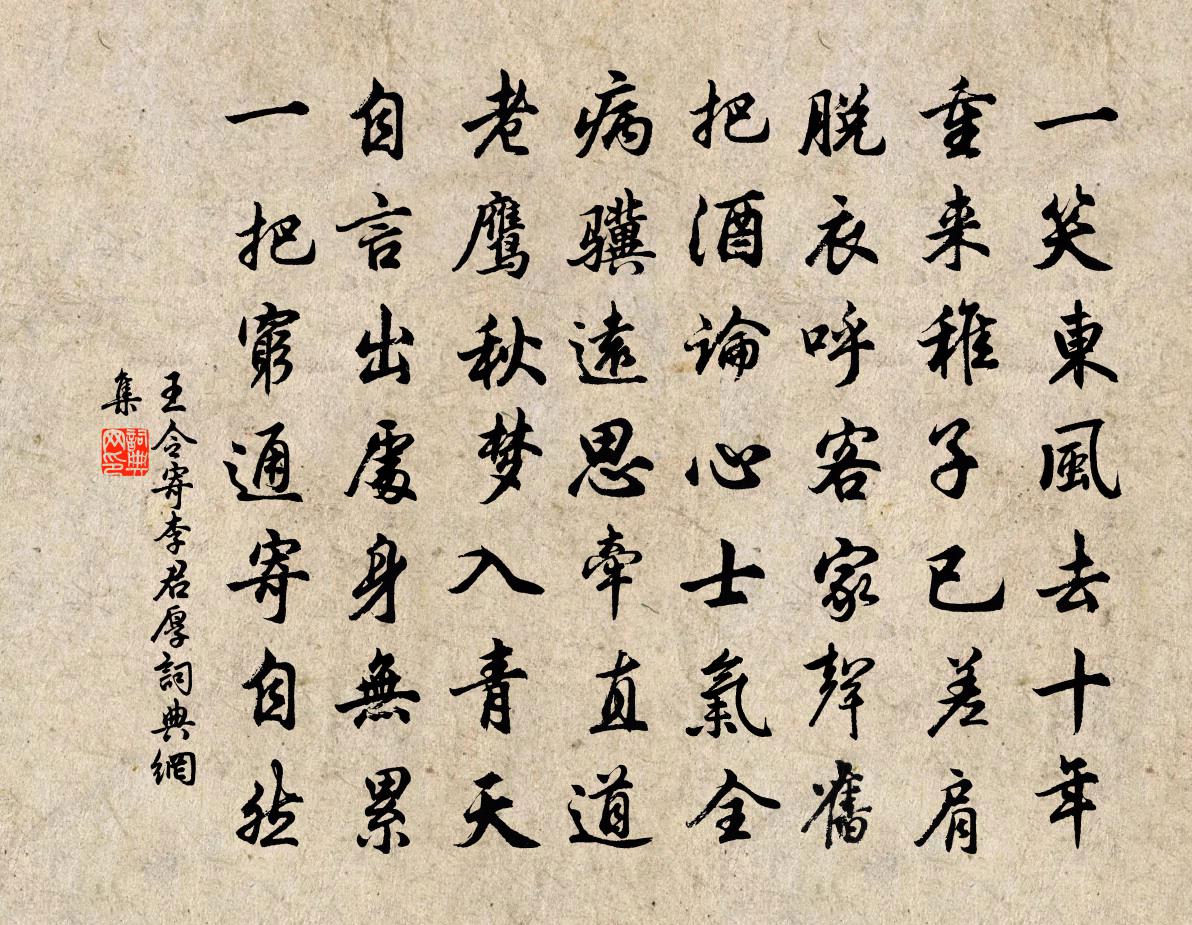 一笑東風去十年
重来稚子已差肩
脱衣呼客家聲舊
把酒論心士氣全
病驥遠思牽直道
老鷹秋梦入青天
自言出處身無累
一把窮通寄自然
王令寄李君厚詞典網
集
詞典
网印